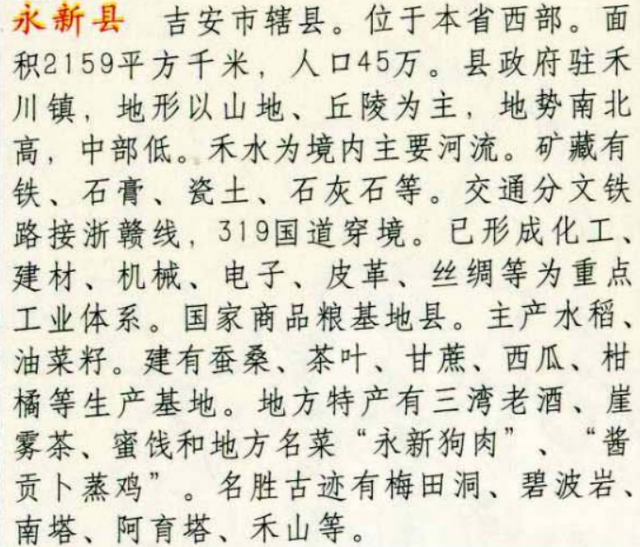 永新县 吉安市辖县。位于本省西部。面
积2159平方千米，人口45万。县政府驻禾
川镇，地形以山地、丘陵为主，地势南北
高，中部低。禾水为境内主要河流。矿藏有
铁、石膏、瓷土、石灰石等。交通分文铁
路接浙赣线，319国道穿境。已形成化工、
建材、机械、电子、皮革、丝绸等为重点
工业体系。国家商品粮基地县。主产水稻、
油菜籽。建有蚕桑、茶叶、甘蔗、西瓜、柑
橘等生产基地。地方特产有三湾老酒、崖
雾茶、蜜饯和地方名菜“永新狗肉”、“酱
贡卜蒸鸡”。名胜古迹有梅田洞、碧波岩、
南塔、阿育塔、禾山等。